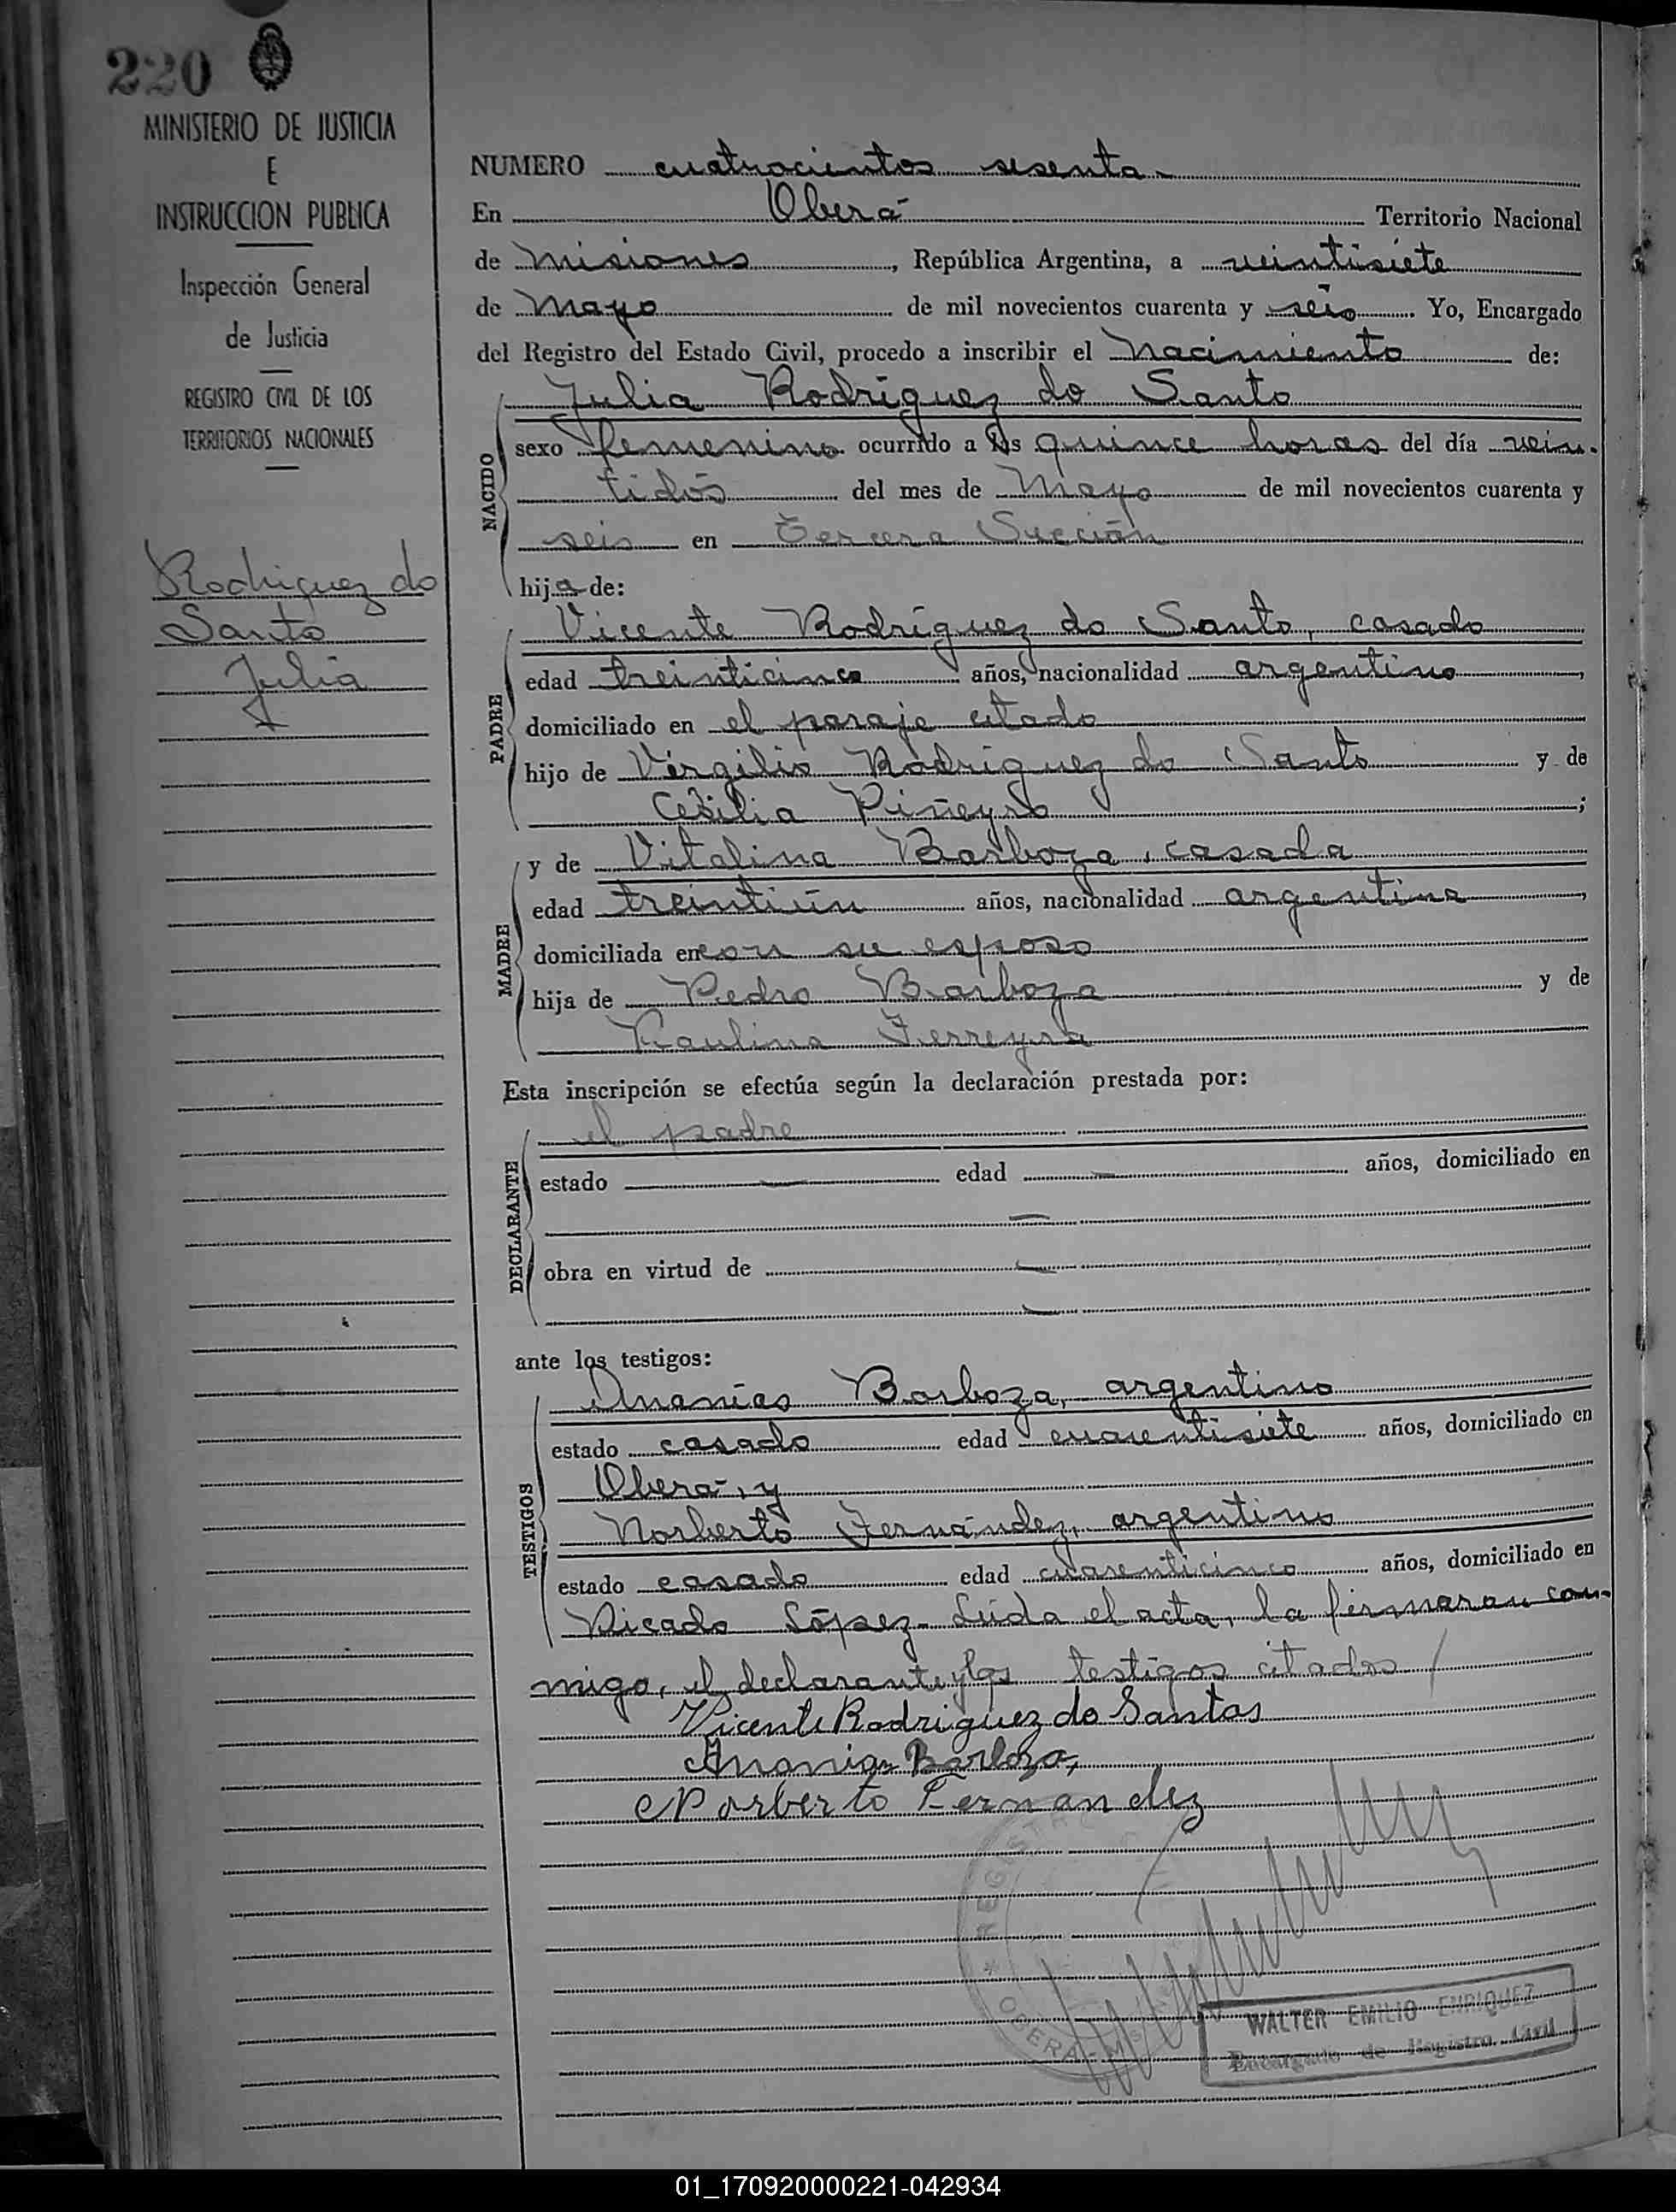 220
MINISTERIO DE JUSTICIA
E
INSTRUCCION PUBLICA
Inspección General
de Justicia
REGISTRO CIVIL DE LOS
TERRITORIOS NACIONALES
Rodriguez do
Santo
Julia
NUMERO cuatrocientos sesenta
En Oberá Territorio Nacional
de Misiones, República Argentina, a veintisiete
de Mayo de mil novecientos cuarenta y seis Yo, Encargado
del Registro del Estado Civil, procedo a inscribir el Nacimiento de:
Julia Rodríguez do Santo
NACIDO
sexo femenino ocurrido a las quince horas del día vein-
tidós del mes de Mayo de mil novecientos cuarenta y
seis en Tercera Sección
hija de:
PADRE
Vicente Rodríguez do Santo, casado
edad treinticinco años, nacionalidad argentino,
domiciliado en el paraje citado
hijo de Virgilio Rodriguez do Santo y de
Cesilia Piñeyro;
MADRE
y de Vitalina Barboza, casada
edad treintiún años, nacionalidad argentina,
domiciliada en con su esposo
hija de Pedro Barboza y de
Paulina Ferreyra
Esta inscripción se efectúa según la declaración prestada por:
DECLARANTE
el padre
estado — edad — años, domiciliado en
—
obra en virtud de —
—
ante los testigos:
TESTIGOS
Ananías Barboza, argentino
estado casado edad cuarentisiete años, domiciliado en
Oberá, y
Norberto Fernández, argentino
estado casado edad cuarenticinco años, domiciliado en
Picada López. Leída el acta, la firmaran con-
migo, el declarante y los testigos citados
Vicente Rodriguez do Santos
Ananias Barboza,
Norberto Fernandez
REGISTR
OBERA - Ms
WALTER EMILIO ENRIQUEZ
Encargado de Registro Civil
01_170920000221-042934